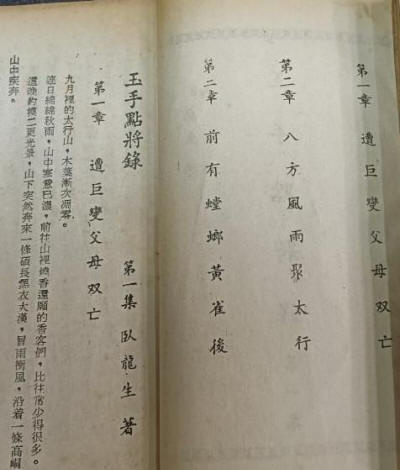 第一章　遭巨變父母双亡
第二章　八方風雨聚太行
第三章　前有螳螂黃雀後
玉手點將錄　第一集　臥龍生　著
第一章　遭巨變父母双亡
九月裡的太行山，木葉漸次凋零。
連日綿綿秋雨，山中寒意已濃，前往山裡燒香還願的香客們，比往常少得很多。
這晚約摸二更光景，山下突然奔來一條碩長黑衣大漢，冒雨衝風，沿着一條高
山中疾奔。